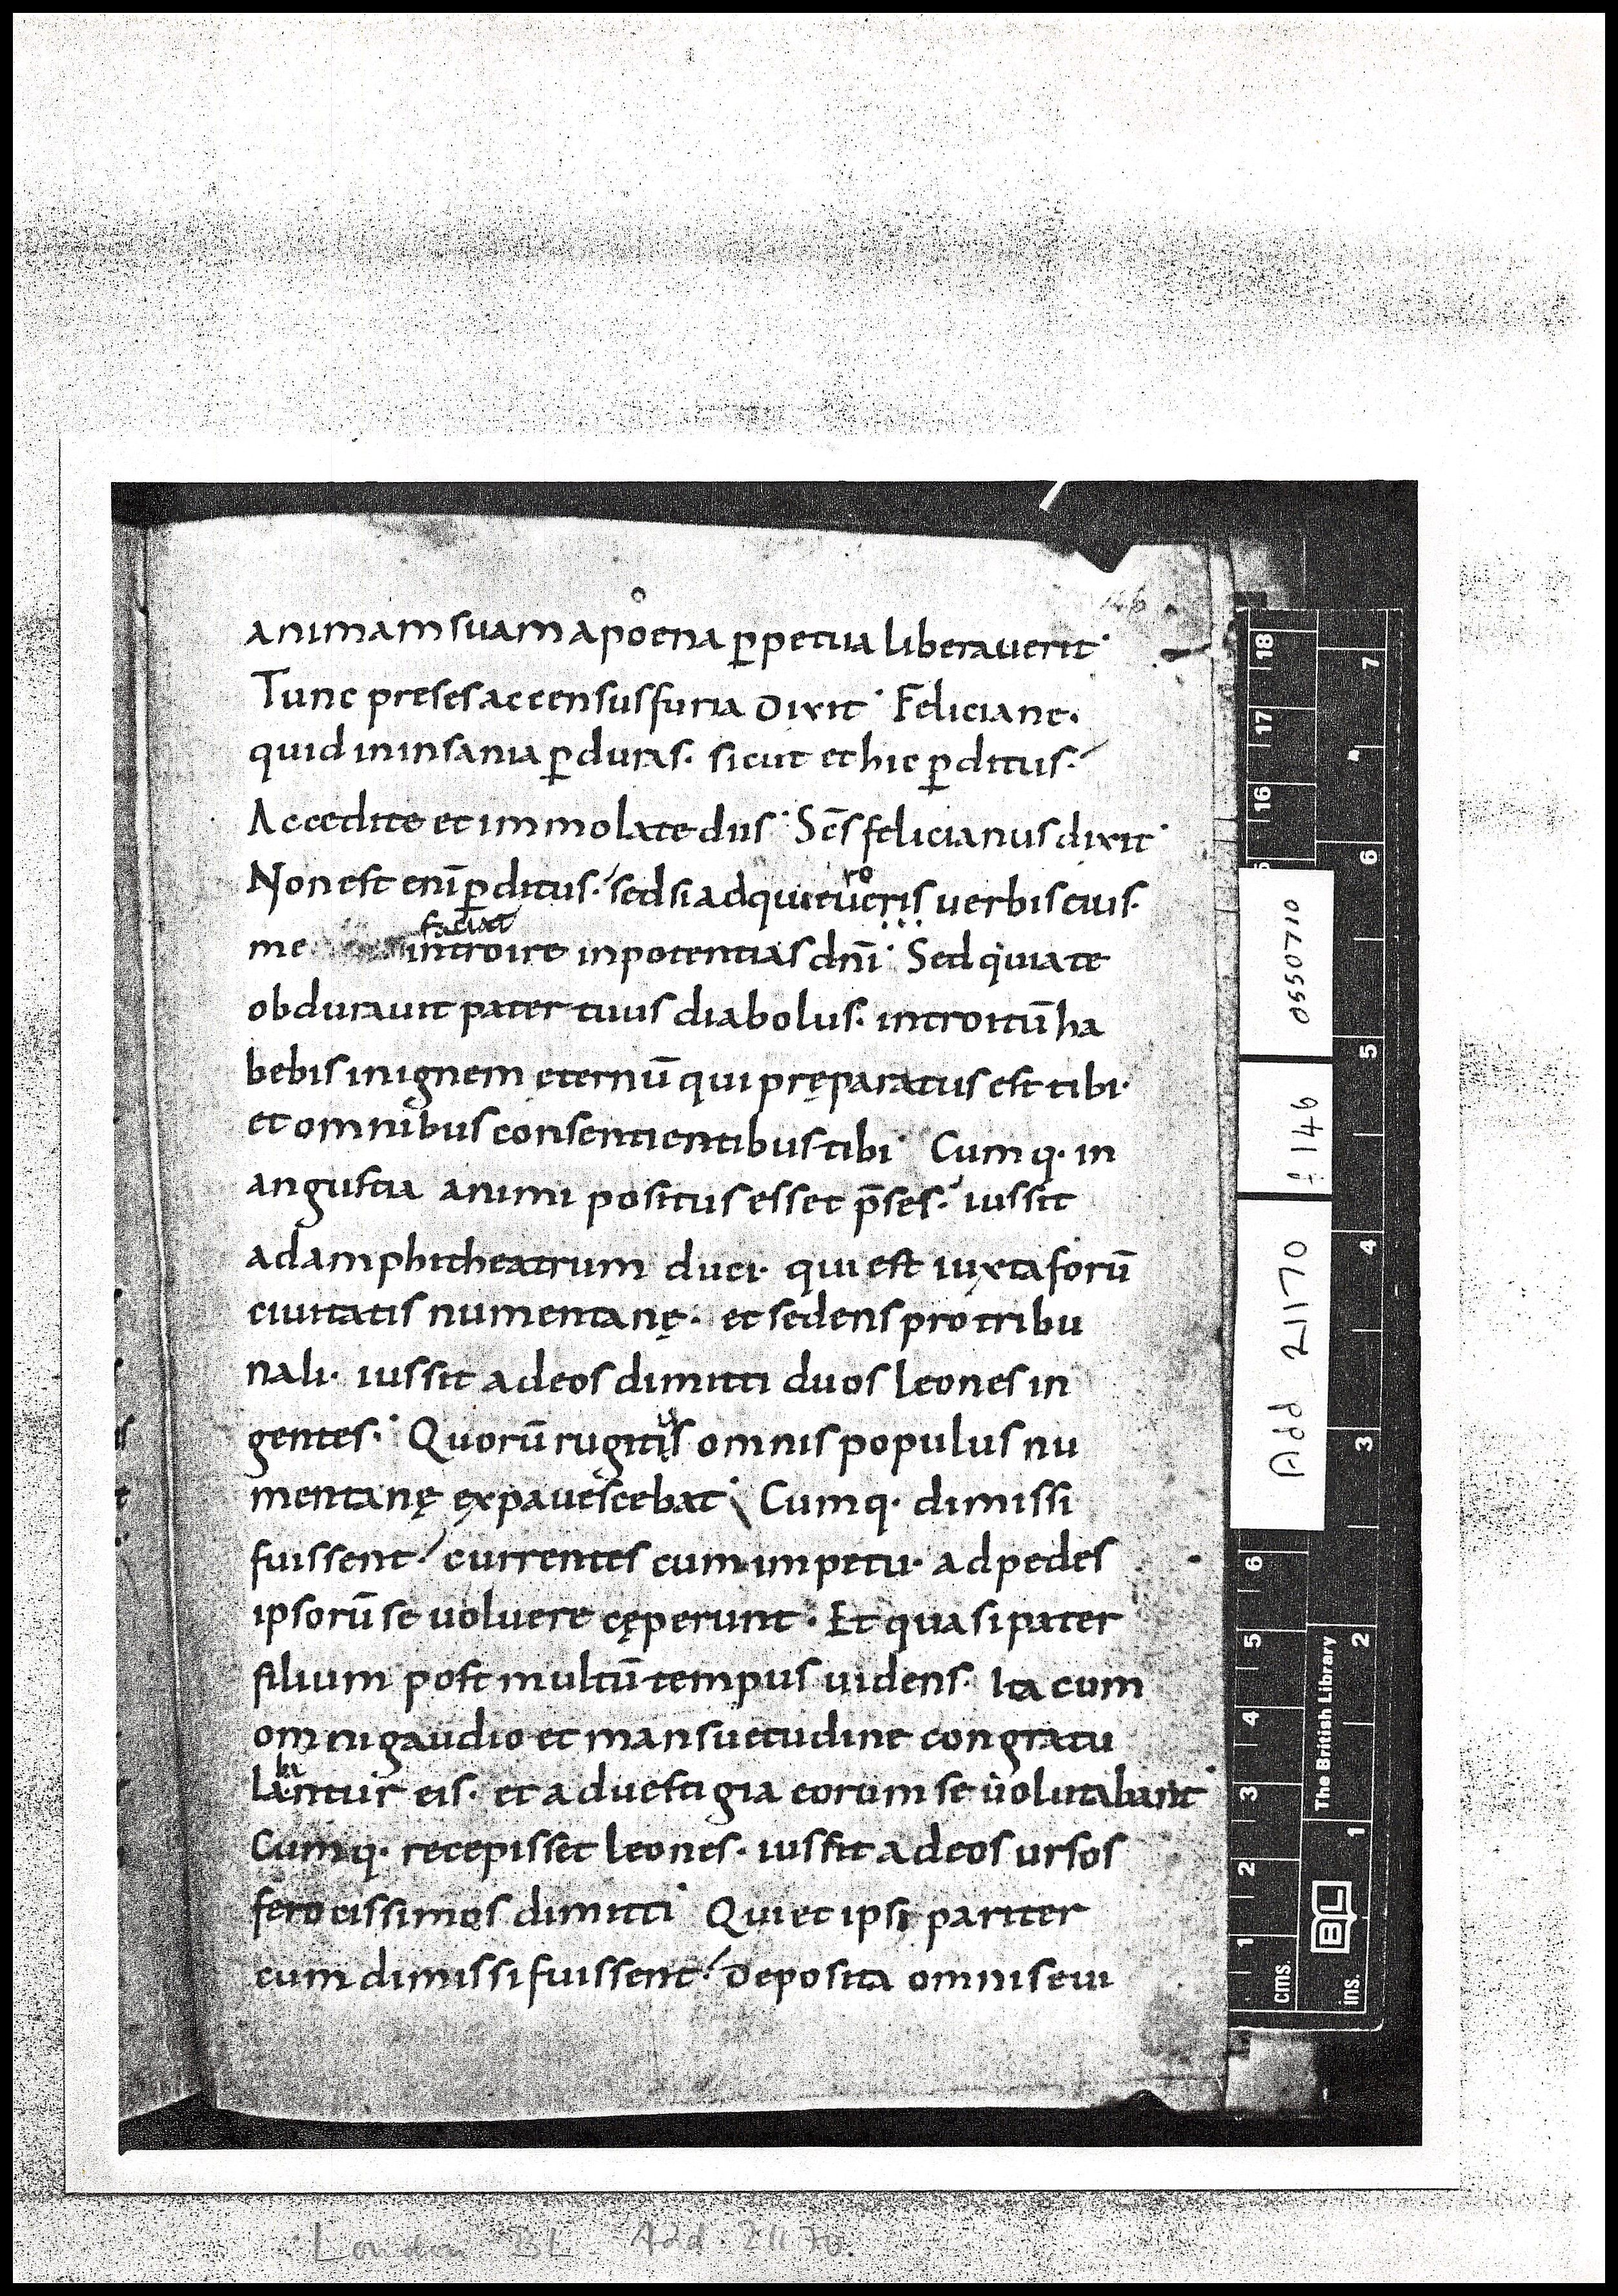 146
animam suam a poena ꝑpetua liberauerit·
Tunc preses accensus furia dixit· Feliciane·
quid in insania ꝑduras· sicut et hic ꝑditus·
Accedite et immolate diis· Scs̄ felicianus dixit·
Non est enī ꝑditus· sed si adquieueris uerbis eius·
ro
faciat
me introire in potentias dnī· Sed quia te
obdurauit pater tuus diabolus· introitū ha
bebis in ignem ęternū qui pręparatus est tibi·
et omnibus consentientibus tibi· Cumq· in
angustia animi positus esset p̄ses· iussit
ad amphitheatrum duci· qui est iuxta forū
ciuitatis numentanę· et sedens pro tribu
nali· iussit ad eos dimitti duos leones in
gentes· Quorū rugitis omnis populus nu
mentanę expauescebat· Cumq· dimissi
fuissent· currentes cum impetu· ad pedes
ipsorū se uoluere cęperunt· Et quasi pater
filium post multū tempus uidens· Ita cum
omni gaudio et mansuetudine congratu
ba
lantur eis· et ad uestigia eorum se uolutabant·
Cumq· recepisset leones· iussit ad eos ursos
ferocissimos dimitti· Qui et ipsi pariter
cum dimissi fuissent· deposita omni seui
Add 21170
f. 146
0550710
The British Library
BL
cms. 1 2 3 4 5 6 16 17 18
ins. 1 2 3 4 5 6 7
London BL Add. 21170.